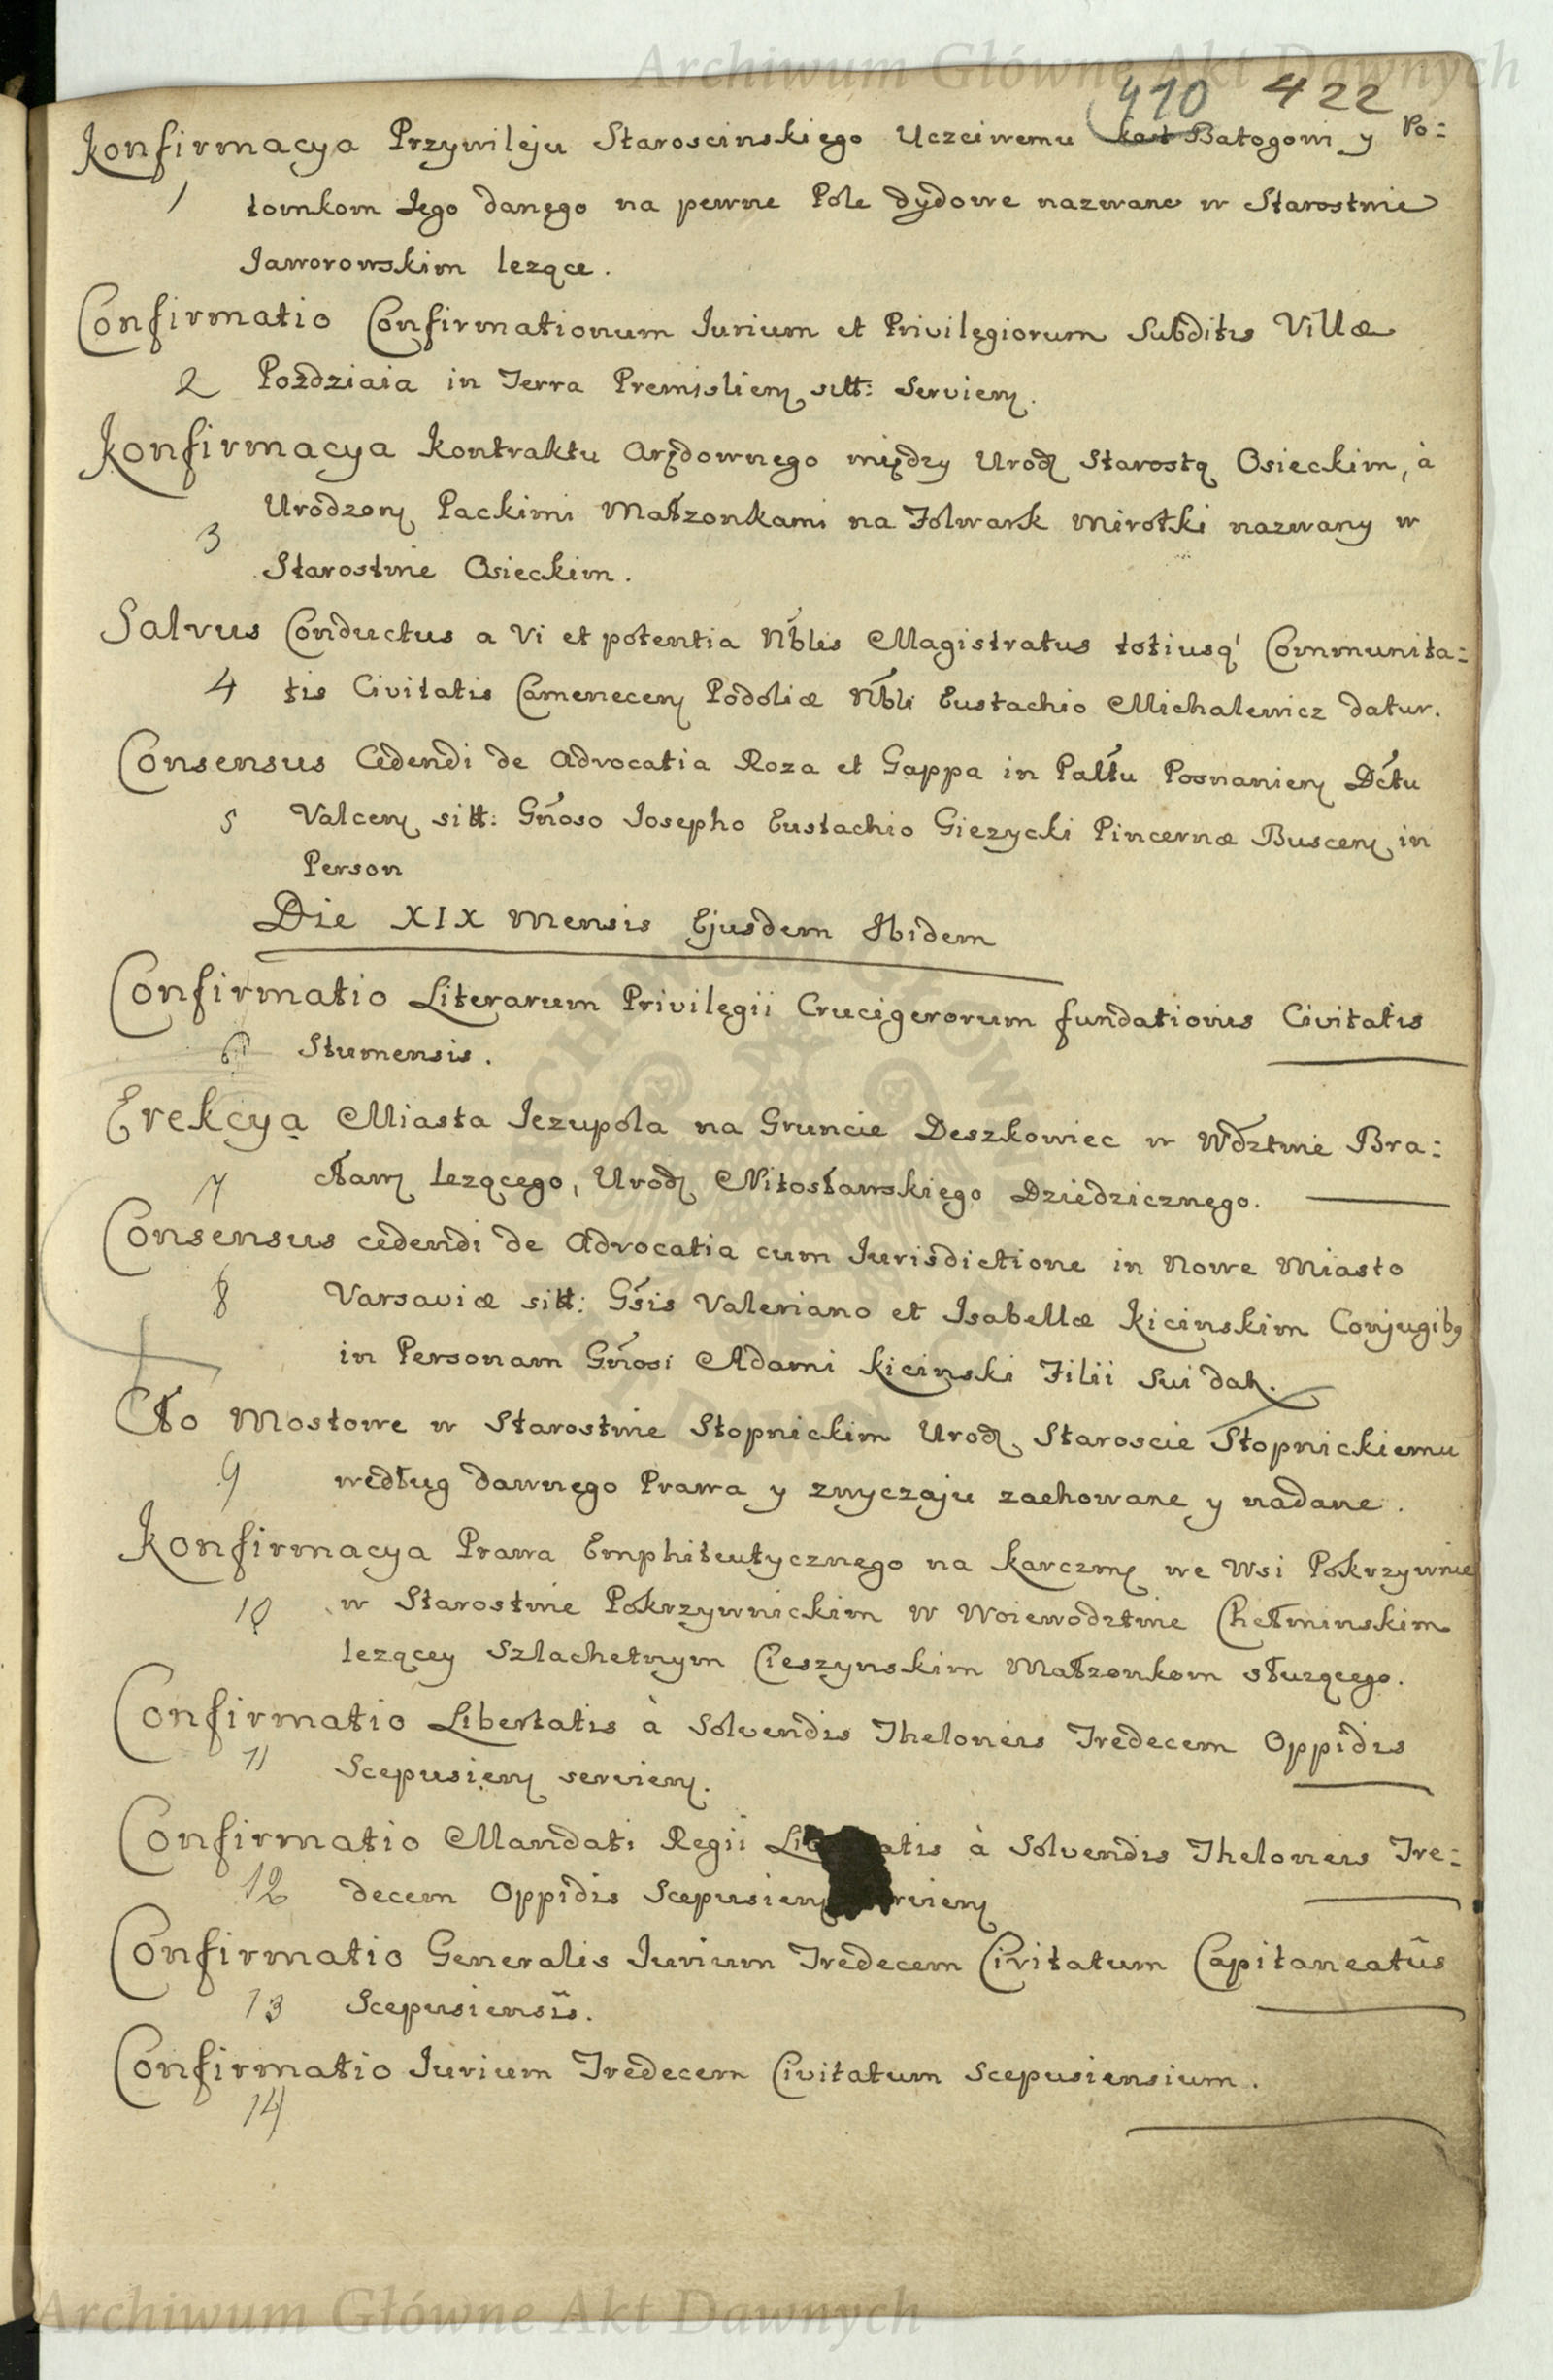 Archiwum Główne Akt Dawnych
410 422
Konfirmacya Przywileju Staroscinskiego Uczciwemu Batogowi y Po:
1 tomkom Jego danego na pewne Pole dydowe nazwane w Starostwie
Jaworowskim lezące.
Confirmatio Confirmationum Jurium et Privilegiorum Subditis Villæ
2 Pożdziaia in Terra Premislien sitt: Servien.
Konfirmacya Kontraktu Arędownego między Urodz Starostą Osieckim, à
Urodzon Packimi Małzonkami na Folwark Mirotki nazwany w
3
Starostwie Osieckim.
Salvus Conductus a Vi et potentia Nblis Magistratus totiusq Communita:
4 tis Civitatis Camenecen Podoliæ Nbli Eustachio Michalewicz datur.
Consensus Cedendi de Advocatia Roza et Gappa in Palttu Posnanien Dctu
5 Valcen sitt: Gnoso Josepho Eustachio Giezycki Pincernæ Buscen in
Person
Die XIX Mensis Ejusdem Ibidem
Confirmatio Literarum Privilegii Crucigerorum fundationis Civitatis
6 Stumensis.
Erekcya Miasta Jezupola na Gruncie Deszkowiec w Wdztwie Bra:
7 cław lezącego, Urodz Nitosławskiego Dziedzicznego.
Consensus cedendi de Advocatia cum Jurisdictione in Nowe Miasto
8 Varsaviæ sitt: Gsis Valeriano et Isabellæ Kicinskim Conjugibq
in Personam Gnosi Adami Kicinski Filii Sui dat.
Cło Mostowe w Starostwie Stopnickim Urodz Staroscie Stopnickiemu
9 według dawnego Prawa y zwyczaju zachowane y nadane.
Konfirmacya Prawa Emphiteutycznego na karczmę we Wsi Pokrzywnie
10 w Starostwie Pokrzywnickim w Woiewodztwie Chełminskim
lezącey Szlachetnym Cieszynskim Małzonkom słuzącego.
Confirmatio Libertatis à Solvendis Theloneis Tredecem Oppidis
11 Scepusien servien.
Confirmatio Mandati Regii Lib atis à Solvendis Theloneis Tre:
12 decem Oppidis Scepusien rvien
Confirmatio Generalis Jurium Tredecem Civitatum Capitaneatûs
13 Scepusiensis.
Confirmatio Jurium Tredecem Civitatum Scepusiensium.
14
Archiwum Główne Akt Dawnych